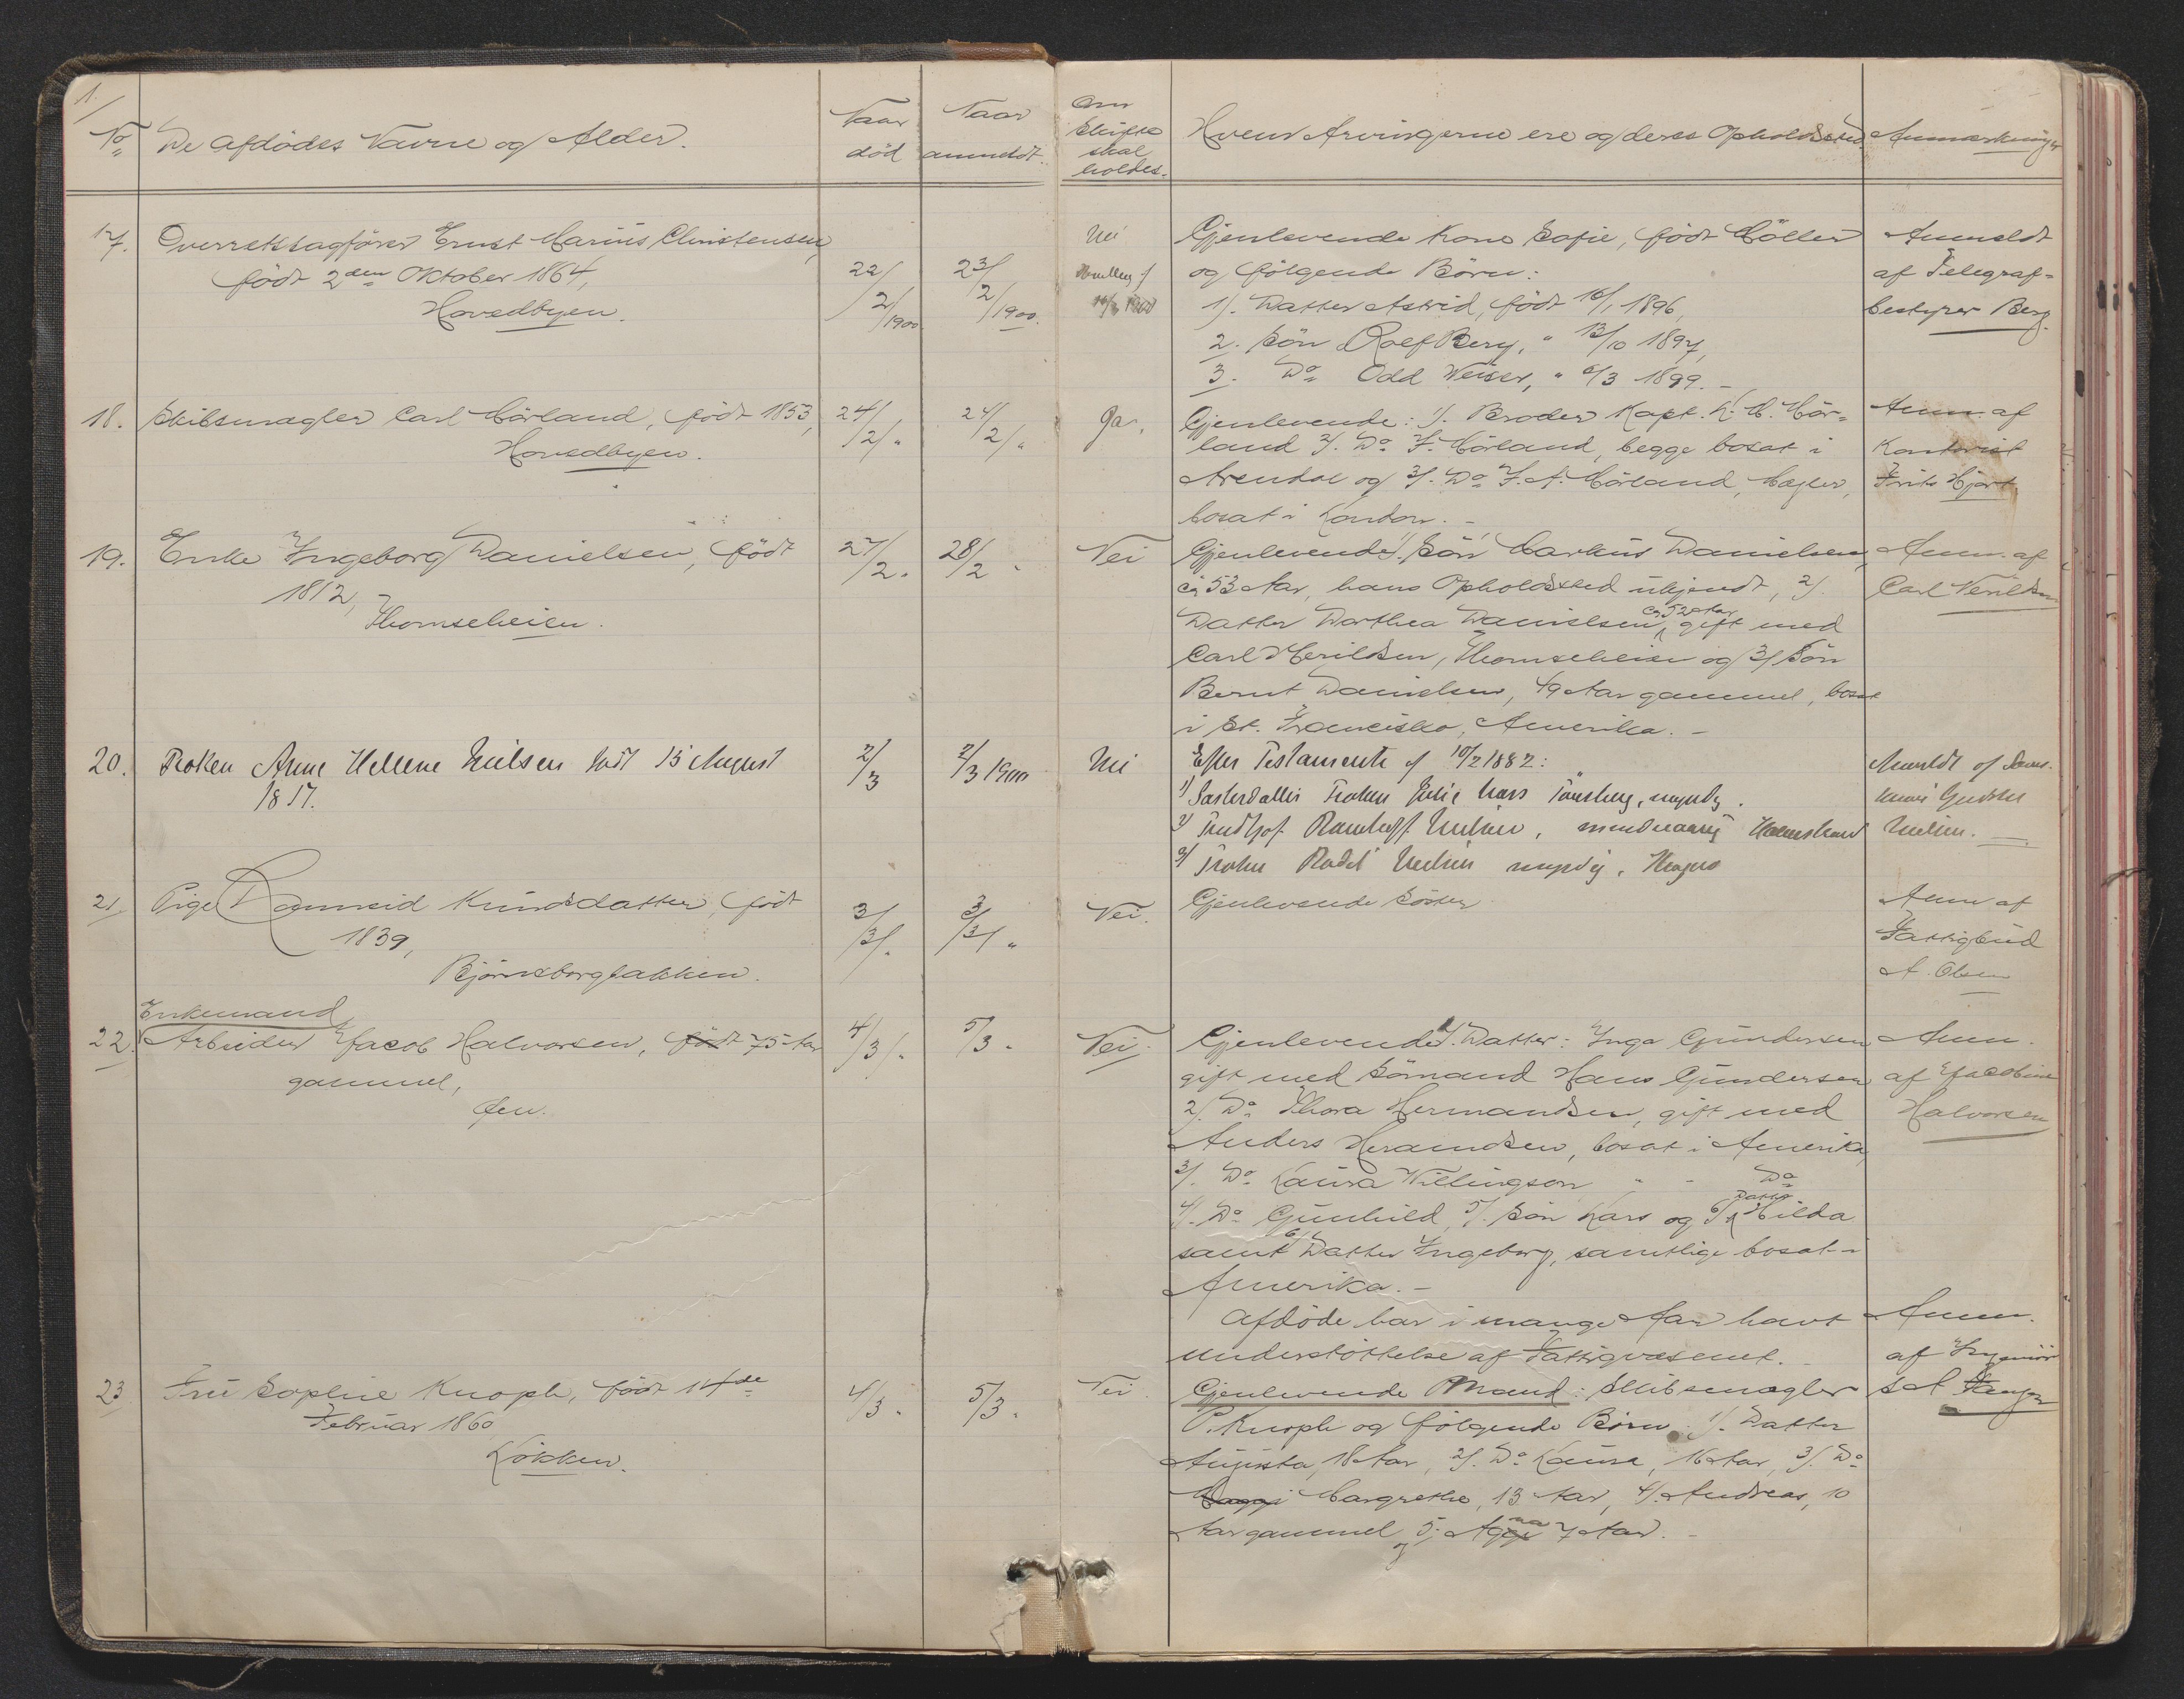 1.
No
De afdödes Navne og Alder.
Naar
död
Naar
anmeldt.
Om
Skifte
skal
holdes.
Hvem Arvingerne ere og deres Opholdssted.
Anmærkninger
17.
Overretssagförer Ernst Marius Christensen,
født 2den Oktober 1864,
Hovedbyen.
22/2/1900
23/2/1900.
Nei
Gjenlevende Kone Sofie, født Möller
og fölgende Börn:
1). Datter Astrid, födt 16/1 1896,
2. Sön Rolf Berg, " 13/10 1897,
3. Do Odd Weiser, " 6/3 1899. -
Anmeldt
af Telegraf-
bestyrer Berg.
18.
Skibsmægler Carl Mörland, födt 1853,
Hovedbyen.
24/2/ "
24/2/ "
Ja.
Gjenlevende: 1/. Broder Kapt. K. M. Mör-
land 2/. Do F. Mörland, begge bosat i
Arendal og 3/. Do F. A. Mörland, Mægler,
bosat i London. -
Anm. af
Kontorist
Frits Hjort
19.
Enke Ingeborg Danielsen, födt
1812,
Thomseheien.
27/2.
28/2 "
Nei
Gjenlevende 1/. Sön Markus Danielsen,
ca 53 Aar, hans Opholdssted ukjendt, 2/.
Datter Dorthea Danielsen, ca 52 Aar, gift med
Carl Verildsen, Thomseheien og 3/ Sön
Bernt Danielsen, 49 Aar gammel, bosat
i St. Francisko, Amerika. -
Anm. af
Carl Verildsen
20.
Froken Anne Hellene Nielsen födt 15 August
1817.
2/3
2/3 1900
Nei
Efter Testamente af 10/2 1882:
1) Søsterdatter Froken Julie Aars Tönsberg, myndig.
2) Fridtjof Nielsen, mindreaarig Holmestrand
3/ Froken Nielsen myndig,
Anmeldt af
Nielsen.
21/
Pige Ranneid Knudsdatter, födt
1839,
Björnsborgbakken.
3/3/.
3/3/ "
Nei.
Gjenlevende Söster
Anm af
Fattigbud
A. Olsen
22.
Enkemand
Arbeider Jacob Halvorsen, födt 75 Aar
gammel,
Øen.
4/3/.
5/3 "
Nei.
Gjenlevende 1/. Datter: Inga Gundersen
gift med Sömand Hans Gundersen
2/. Do Thora Hermandsen, gift med
Anders Hermandsen, bosat i Amerika,
3/. Do Laura Willingson " - Do
4/. Do Gunhild, 5/. Sön Lars og Datter Hilda
samt 6/ Datter Ingeborg, samtlige bosat i
Amerika. -
Afdöde har i mange Aar havt
understöttelse af Fattigvæsenet. -
Anm.
af Jacobine
Halvorsen
23
Fru Sophie Knoph, födt 14de
Februar 1860
Lökken.
4/3 "
5/3 "
Nei
Gjenlevende Mand: Skibsmægler
P. Knoph og fölgende Börn: 1/. Datter
Augusta, 18 Aar, 2/. Do Laura, 16 Aar, 3/. Do
Maggi Margrethe, 13 Aar, 4/. Andreas, 10
Aar gammel og 5. 7 Aar. -
Anm.
af Ingeniör